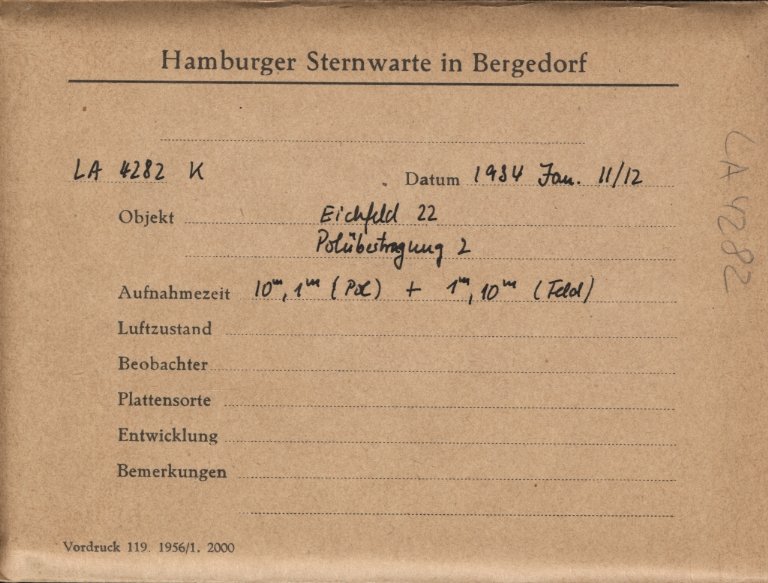 Hamburger Sternwarte in Bergedorf
LA 4282 K
Datum 1934 Jan. 11/12
Objekt Eichfeld 22
Polübertragung 2
Aufnahmezeit 10ᵐ, 1ᵐ (Pol) + 1ᵐ, 10ᵐ (Feld)
Luftzustand
Beobachter
Plattensorte
Entwicklung
Bemerkungen
Vordruck 119. 1956/1. 2000
LA 4282